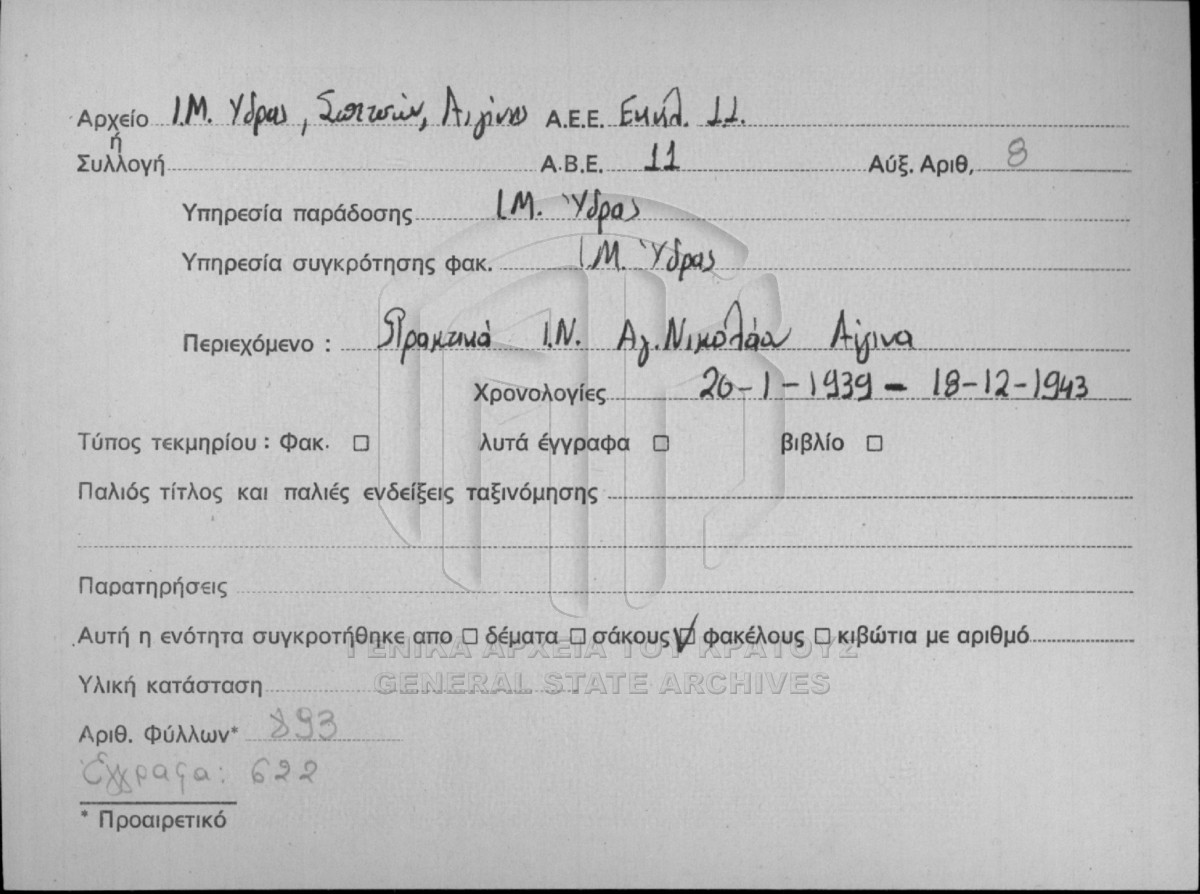 Αρχείο Ι.Μ. Ύδρας, Σπετσών, Αιγίνης Α.Ε.Ε. Εκκλ. 11.
ή
Συλλογή Α.Β.Ε. 11 Αύξ. Αριθ. 8
Υπηρεσία παράδοσης Ι.Μ. Ύδρας
Υπηρεσία συγκρότησης φακ. Ι.Μ. Ύδρας
Περιεχόμενο : Πρακτικά Ι.Ν. Αγ. Νικολάου Αίγινα
Χρονολογίες 26-1-1939 - 18-12-1943
Τύπος τεκμηρίου : Φακ. □ λυτά έγγραφα □ βιβλίο □
Παλιός τίτλος και παλιές ενδείξεις ταξινόμησης
Παρατηρήσεις
Αυτή η ενότητα συγκροτήθηκε απο □ δέματα □ σάκους ☑ φακέλους □ κιβώτια με αριθμό
ΓΕΝΙΚΑ ΑΡΧΕΙΑ ΤΟΥ ΚΡΑΤΟΥΣ
GENERAL STATE ARCHIVES
Υλική κατάσταση
Αριθ. Φύλλων* 893
Έγγραφα: 622
* Προαιρετικό